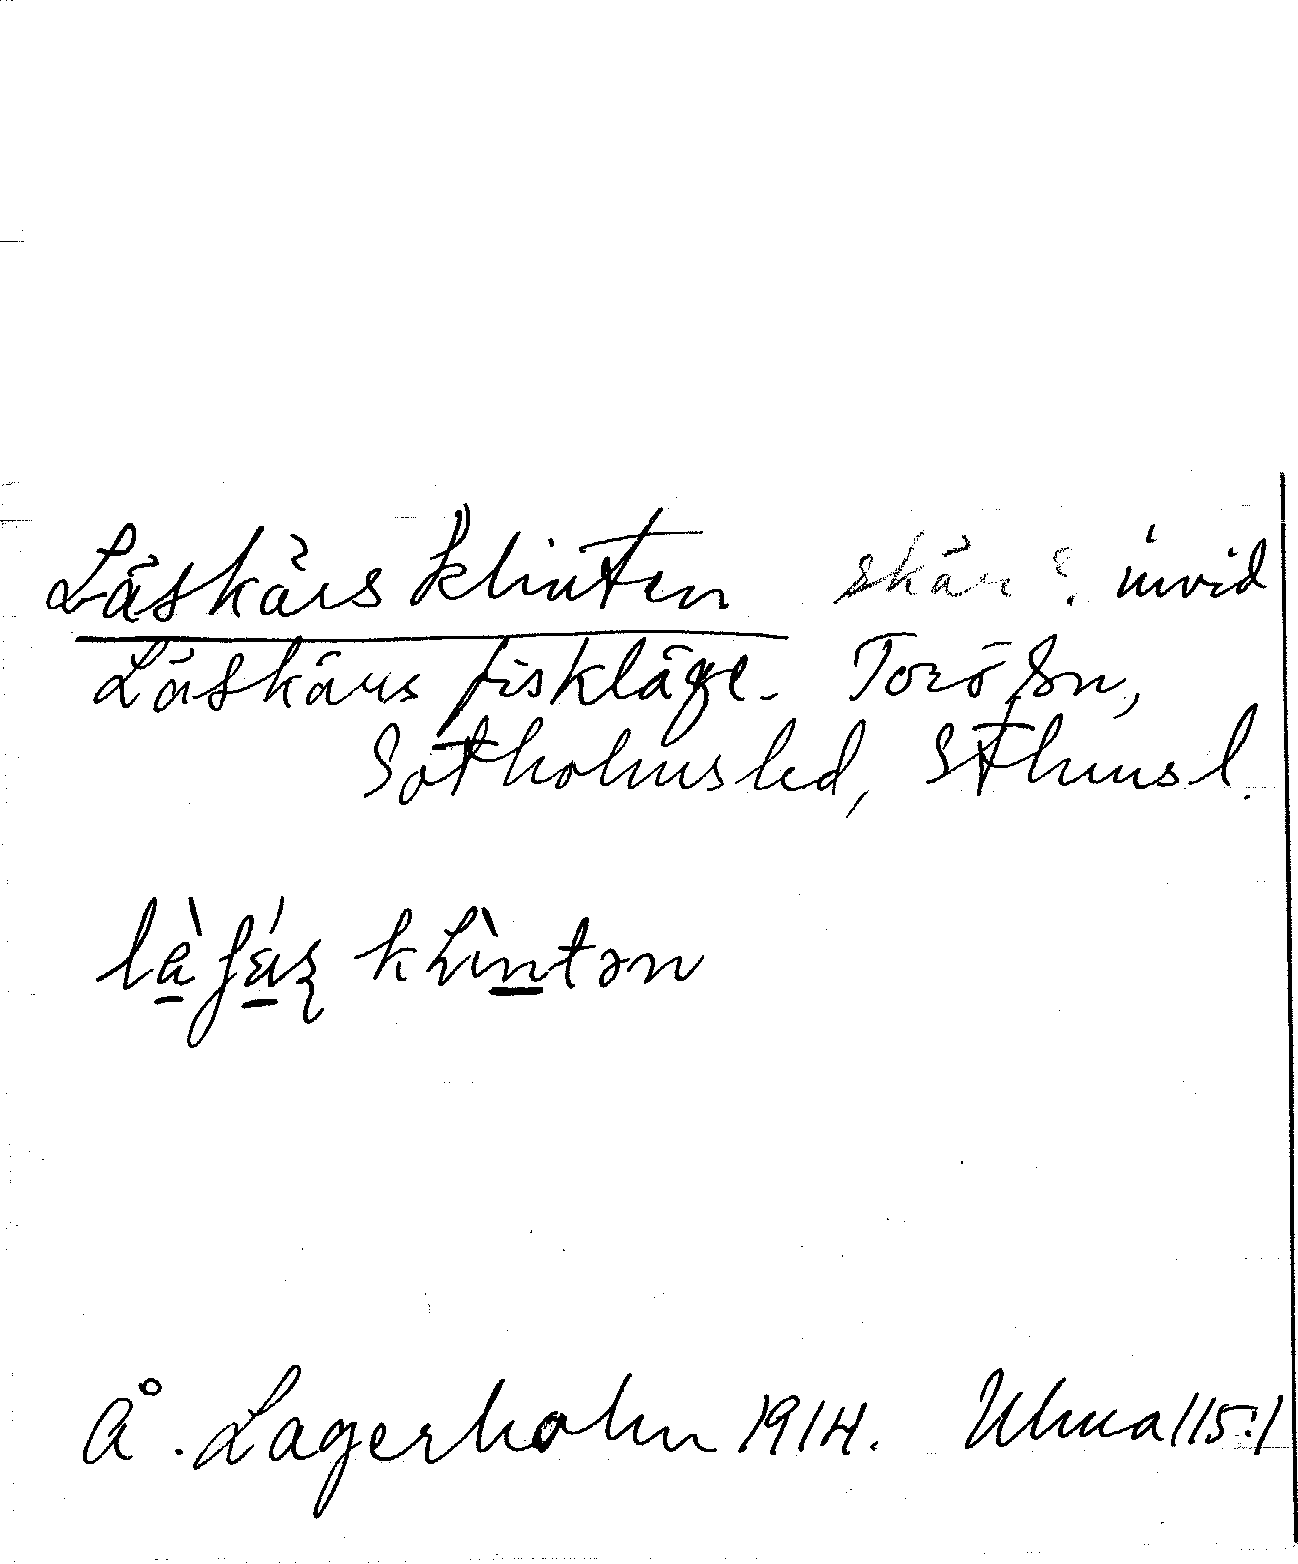 Låskärs klinten skär? invid
Låskärs fiskläge. Torö Sn,
Sotholms hd, Sthms l.
klintən
Å. Lagerholm 1914. Ulma 115:1